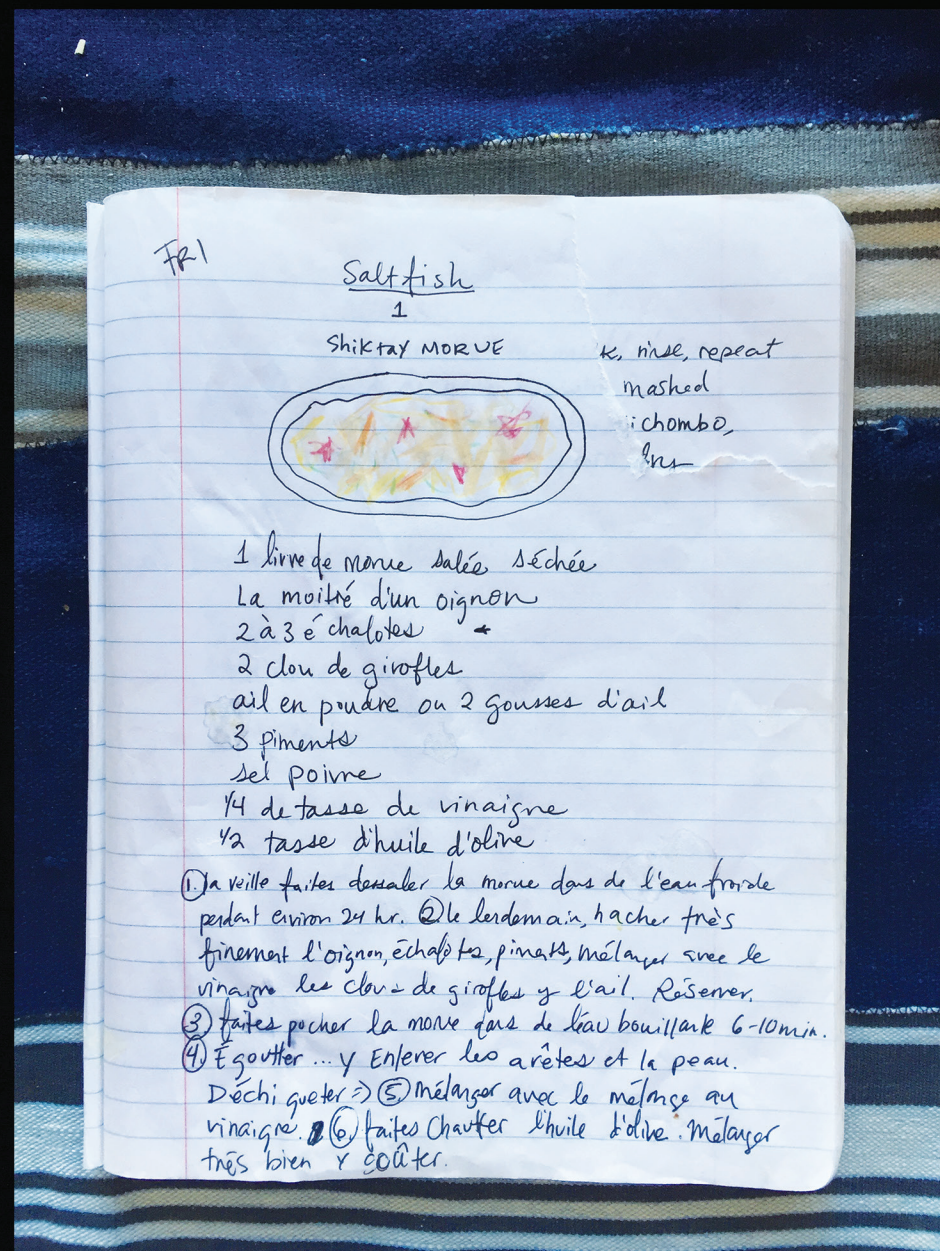 FR1
Saltfish
1
Shiktay MORUE
k, rinse, repeat
mashed
i chombo,
1 livre de morue salée séchée
La moitié d'un oignon
2 à 3 échalotes
2 clou de girofles
ail en poudre ou 2 gousses d'ail
3 piments
sel poivre
1/4 de tasse de vinaigre
1/2 tasse d'huile d'olive
1. la veille faites dessaler la morue dans de l'eau froide
pendant environ 24 hr. 2 le lendemain, hacher très
finement l'oignon, échalotes, piments, mélanger avec le
vinaigre les clous de girofles y l'ail. Réserver.
3 faites pocher la morue dans de l'eau bouillante 6-10 min.
4. Égoutter ... y Enlever les arêtes et la peau.
Déchiqueter => 5 mélanger avec le mélange au
vinaigre. 6. faites Chauffer l'huile d'olive. Mélanger
très bien y goûter.